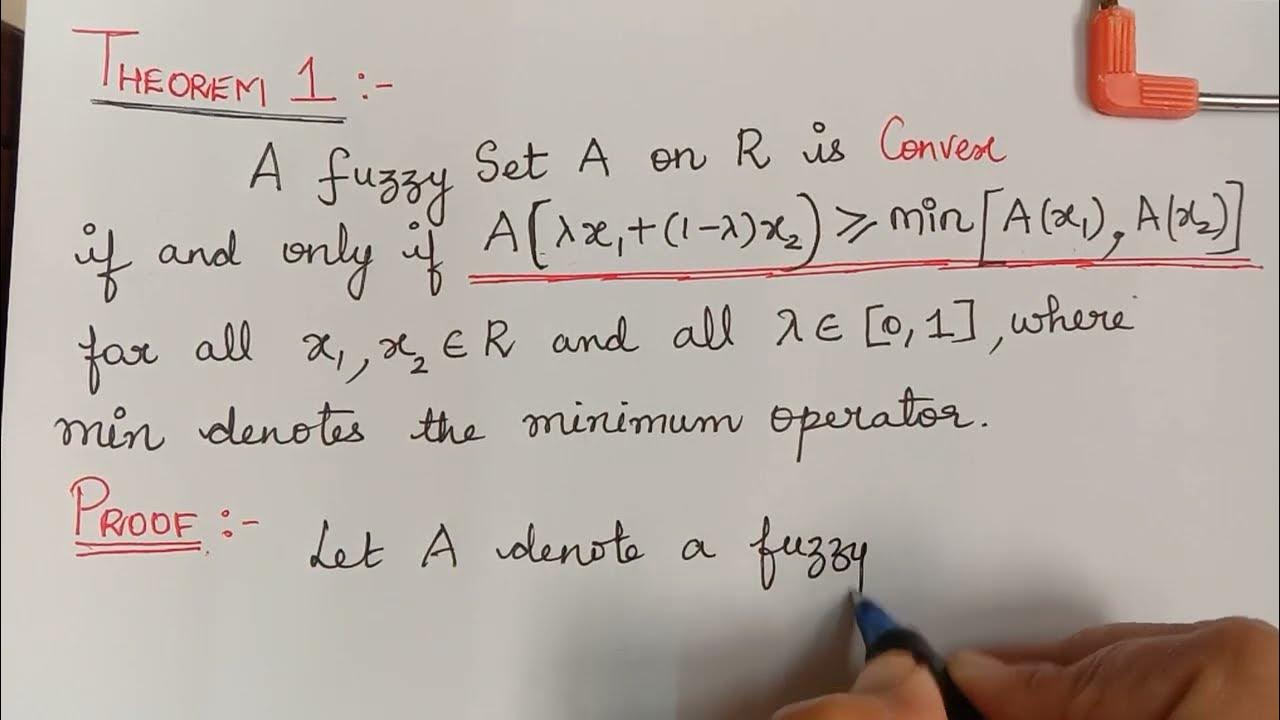 THEOREM 1 :-
A fuzzy Set A on R is Convex
if and only if A[λx₁+(1-λ)x₂) ⩾ min[A(x₁), A(x₂)]
for all x₁, x₂ ∈ R and all λ ∈ [0, 1], where
min denotes the minimum operator.
PROOF :- Let A denote a fuzzy